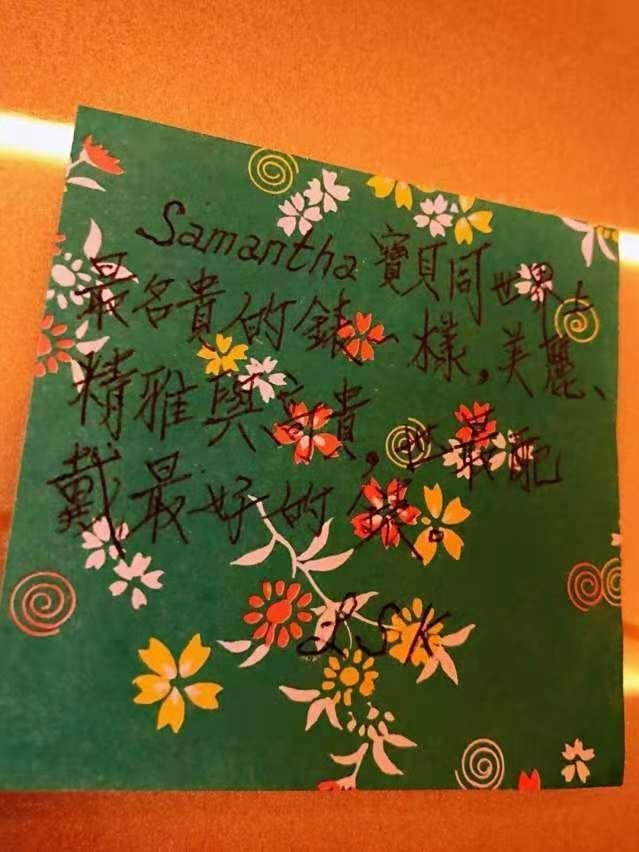 Samantha 寶貝同世界上
最名貴的錶一樣，美麗、
精雅與高貴，也最配
戴最好的錶。
LSK